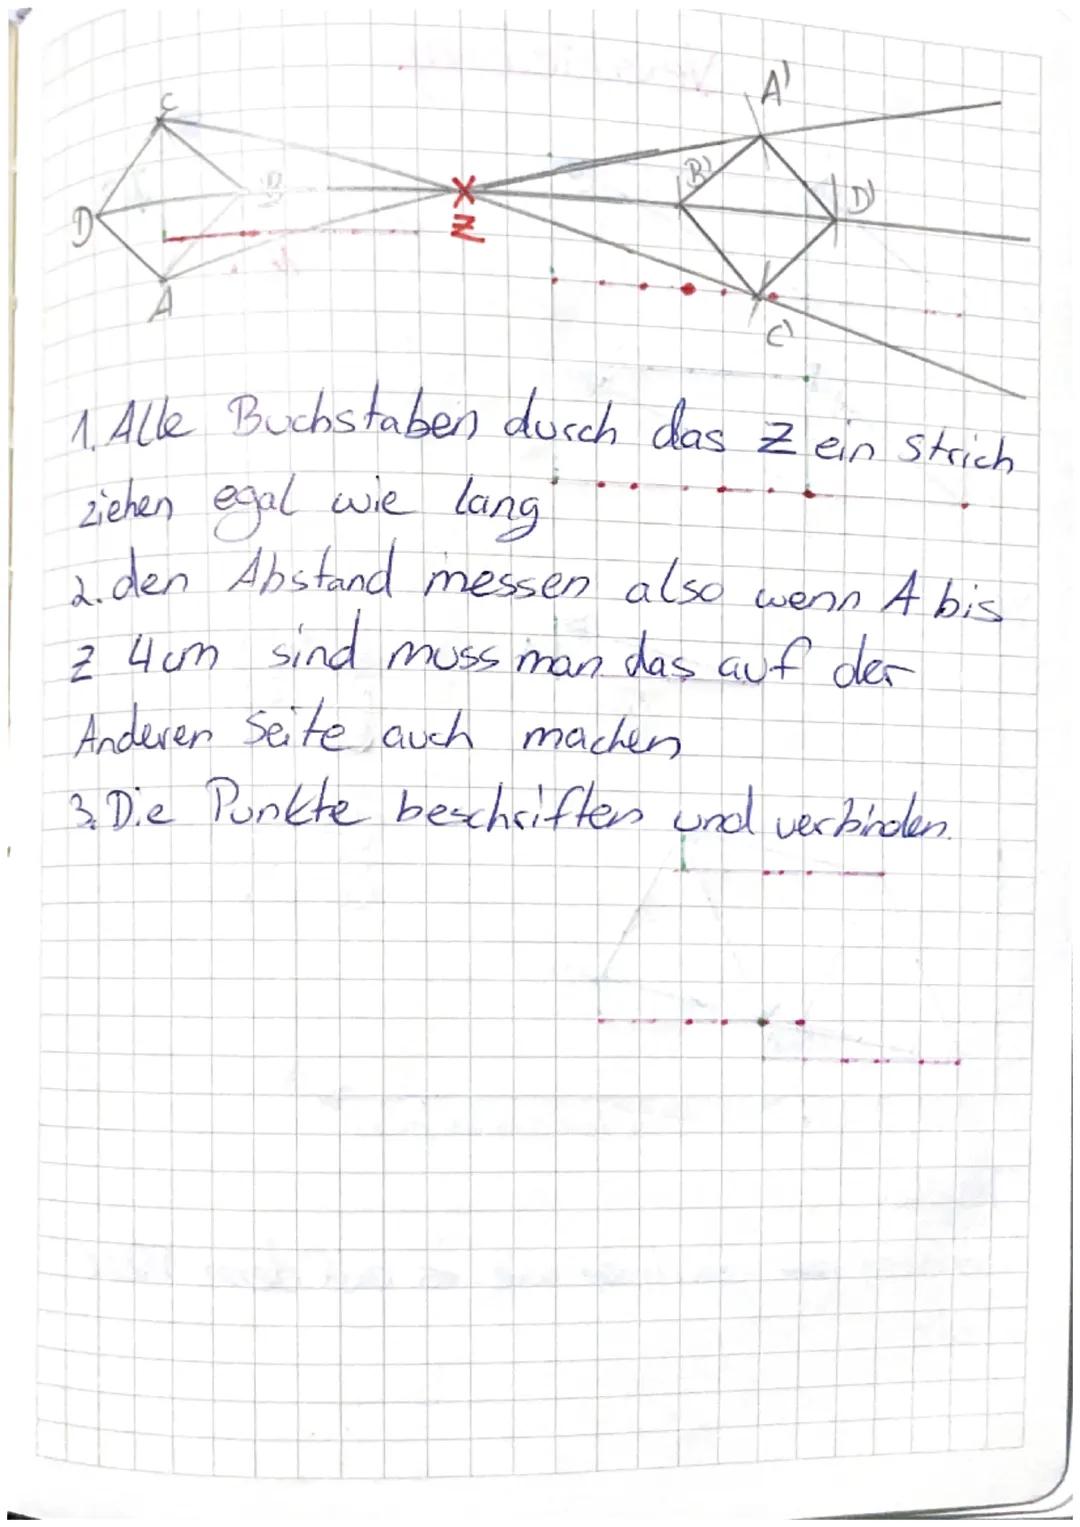 C
A'
B'
D'
D
B
Z
A
C'
1. Alle Buchstaben durch das Z ein strich
ziehen egal wie lang
2. den Abstand messen also wenn A bis
Z 4cm sind muss man das auf der
Anderen Seite auch machen
3. Die Punkte beschriften und verbinden.